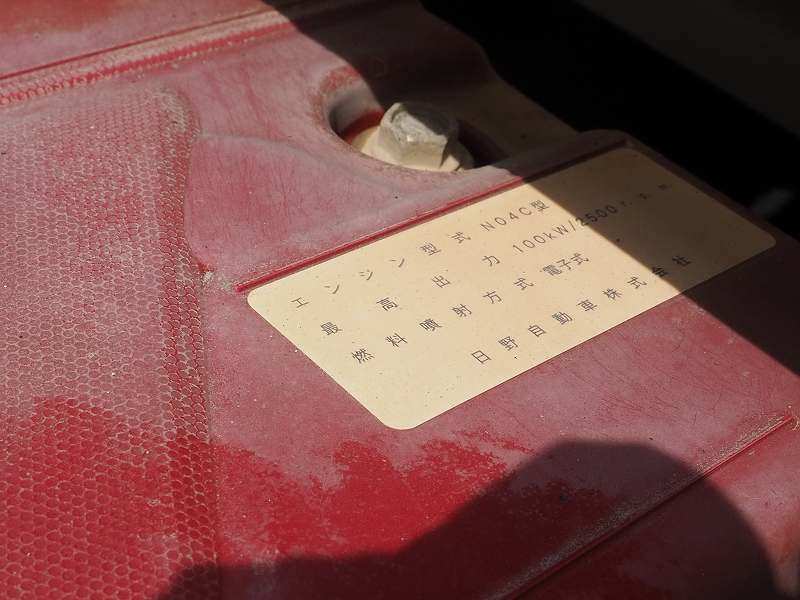 エンジン型式 N04C型
最高出力 100kW/2500r.p.m.
燃料噴射方式 電子式
日野自動車株式会社